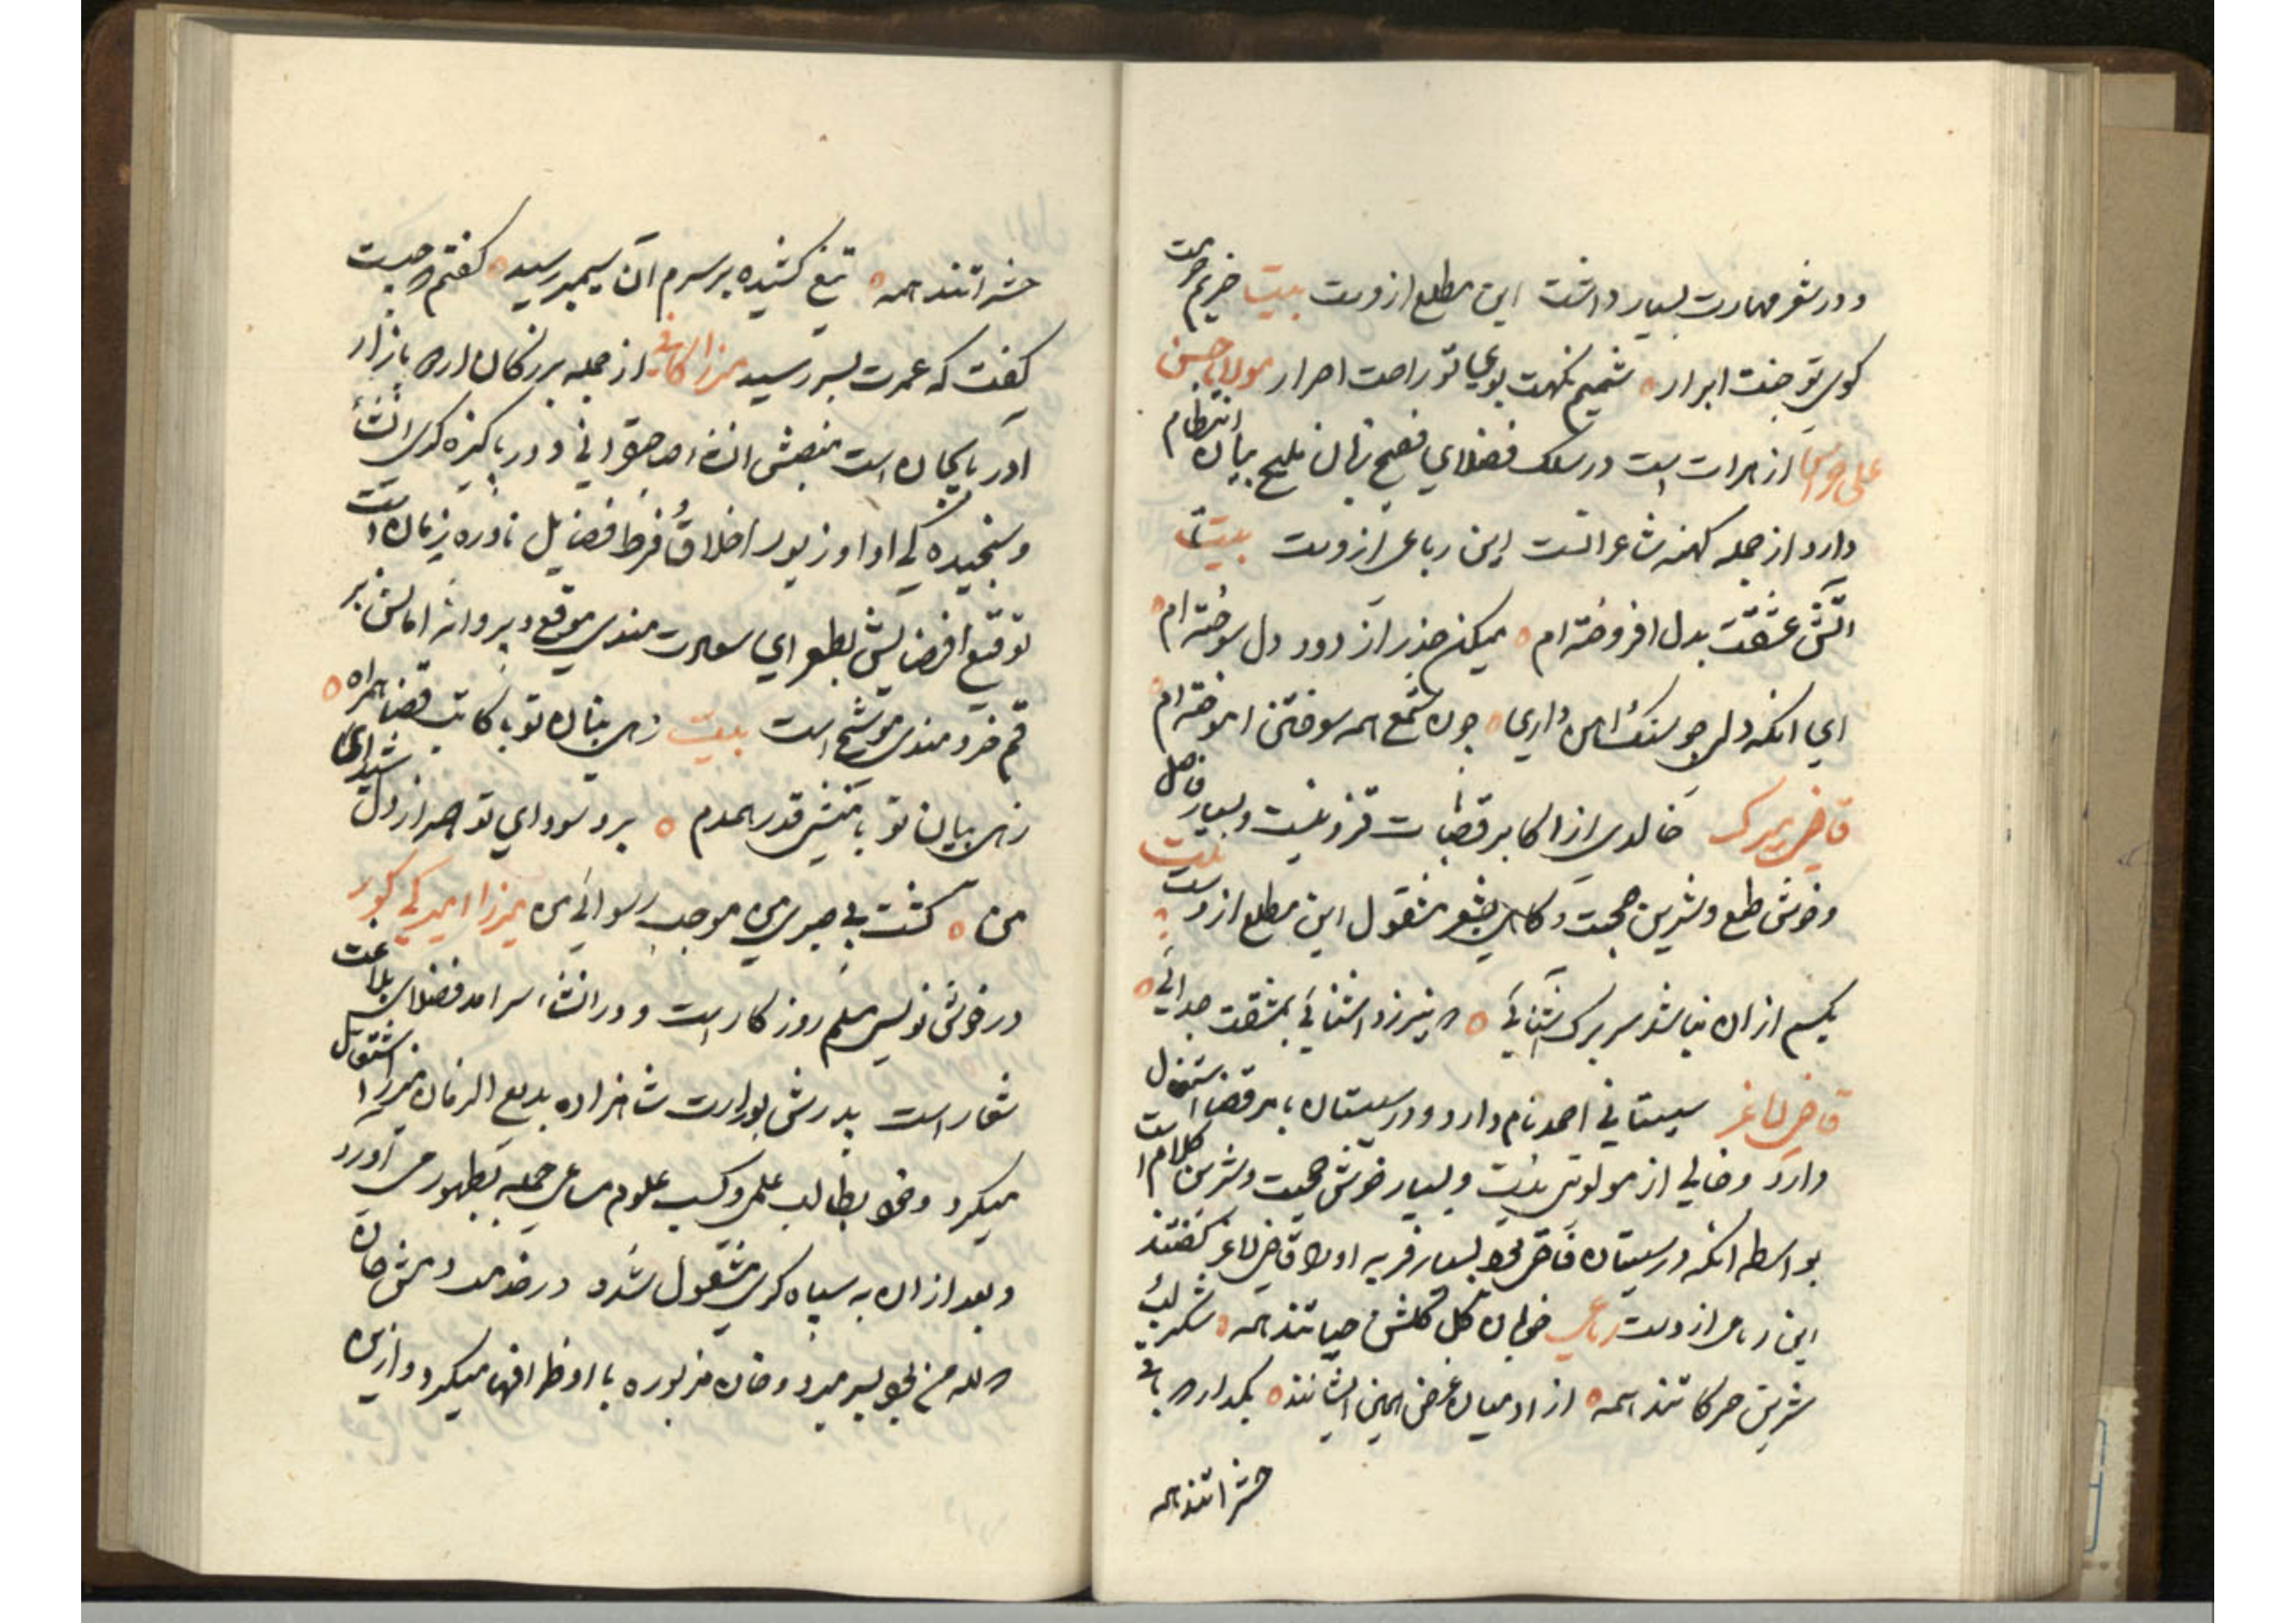 و در شعر مهارت بسیار داشت این مطلع ازوست بیت حریم حرمت
کوی تو جنت ابرار شمیم نکهت بوی تو راحت احرار مولانا حسن
علی از هرات است در سلک فضلای فصیح زبان ملیح بیان انتظام
دارد از جمله کهنه شاعرانست این رباعی ازوست بیت
آتش عشقت بدل افروخته ام میکن حذر از دود دل سوخته ام
ای آنکه دلی چو سنک داری چون شمع همه سوختن اموخته ام
قاضی میرک خالدی از اکابر قضات قزوینست و بسیار فاضل
و خوش طبع و شیرین صحبت و کاهی بشعر مشغول این مطلع ازوست بیت
یکیم ازان نباشد سر برک اشنائی که نیرزد اشنائی بمشقت جدائی
قاضی لاغر سیستانی احمد نام دارد و در سیستان بامر قضا اشتغال
دارد و خالی از مولویتی نیست و بسیار خوش صحبت و شیرین کلام است
بواسطه انکه در سیستان قاضی بود بسیار فربه او را قاضی لاغر کفتند
این رباعی ازوست رباعی خوبان کل کلشن حیاتند همه شکر لب
شیرین حرکاتند همه از ادمیان غرض همین ایشانند بکذار که باقی
حشراتند همه
حشراتند همه تیغ کشیده بر سرم آن سیمبر رسید کفتم که چیست
کفت که عمرت بسر رسید میرزا کافی از جمله بزرکان اردوباد
ادربایجان است منصبش انشاء و در پاکیزه کوی انشاء
و سنجیده کی ادا و زیور اخلاق و فرط فضایل نادره زمان است
توقیع افضالش بطغرای سعادت مندی موقع و پروانه امالش بر
قم خردمندی موشح است بیت زهی بنان تو با کاتب قضا همراه
زهی بیان تو با منشی قدر همدم برد سودای تو صبر از دل شیدای
من کشت بی صبری من موجب رسوائی من میرزا احمد
در خوش نویسی مسلم روزکار است و در انشاء سرامد فضلای بلاغت
شعار است پدرش بوزارت شاهزاده بدیع الزمان میرزا اشتغال
میکرد و خود بطالب علمی و کسب علوم مساعی جمیله بظهور می آورد
و بعد ازان به سپاه کری مشغول شده در خدمت دورمش خان
لله من بود بسر میبرد و خان مزبوره با او ظرافتها میکرد و ازین